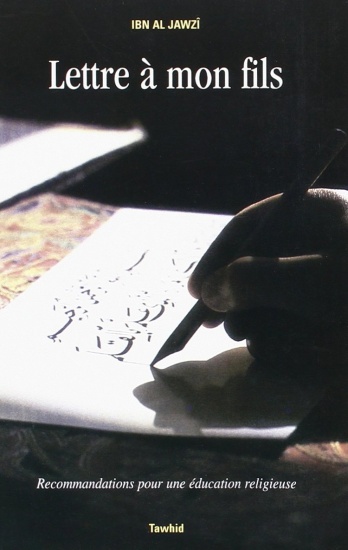 IBN AL JAWZÎ
Lettre à mon fils
Recommandations pour une éducation religieuse
Tawhid